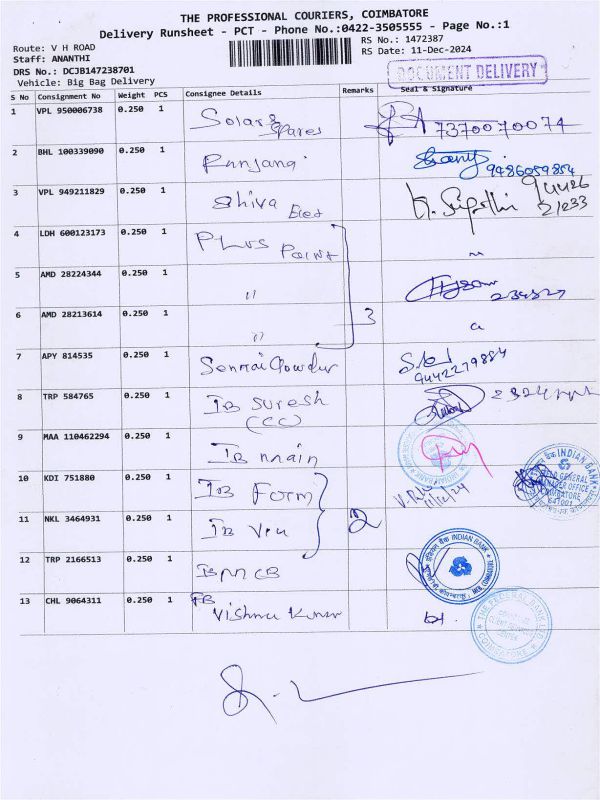 THE PROFESSIONAL COURIERS, COIMBATORE
Delivery Runsheet - PCT - Phone No.:0422-3505555 - Page No.:1
Route: V H ROAD RS No.: 1472387
Staff: ANANTHI RS Date: 11-Dec-2024
DRS No.: DCJB147238701
Vehicle: Big Bag Delivery
DOCUMENT DELIVERY
S No Consignment No Weight PCS Consignee Details Remarks Seal & Signature
1 VPL 950006738 0.250 1 Solar Spares 7370070074
2 BHL 100339090 0.250 1 Ranjana 9486059854
3 VPL 949211829 0.250 1 Shiva Elet 94426 21233
4 LDH 600123173 0.250 1 Plus Point
5 AMD 28224344 0.250 1 " 234827
6 AMD 28213614 0.250 1 " 3
7 APY 814535 0.250 1 9442279884
8 TRP 584765 0.250 1 IB Suresh (CCC)
9 MAA 110462294 0.250 1 IB main
10 KDI 751880 0.250 1 IB Form 11/12/24
11 NKL 3464931 0.250 1 IB 2
12 TRP 2166513 0.250 1
13 CHL 9064311 0.250 1 FB Vishnu Kumar
INDIAN BANK
COIMBATORE
641001
INDIAN BANK
THE FEDERAL BANK LTD
COIMBATORE